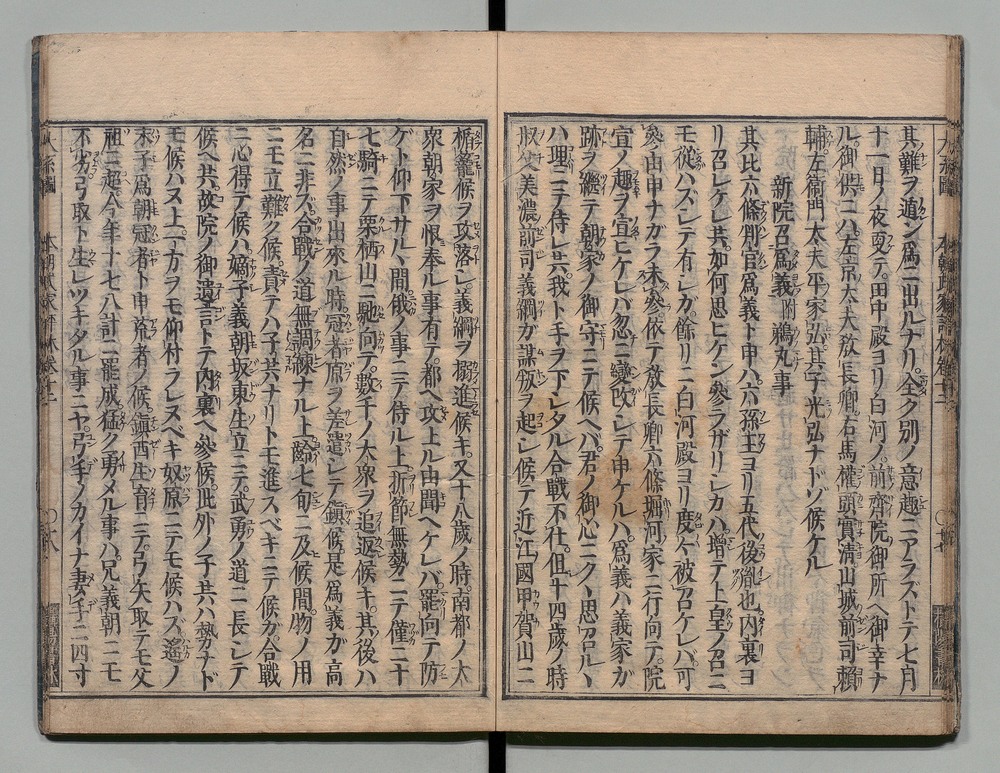 其難ヲ遁ン爲ニ出ルナリ。全ク別ノ意趣ニアラズトテ七月
十一月ノ夜更テ。田中殿ヨリ白河ノ。前齋院御所ヘ御幸ナ
ル。御供ニハ。左京太夫敎長卿。右馬權頭實淸。山城前司賴
輔左衛門太夫平家弘。其子光弘ナドゾ候ケル
新院召爲義附鵜丸事
其比六條判官爲義ト申ハ。六孫王ヨリ五代後胤也。内裏ヨ
リ召レケレ共。如何思ヒケン參ラザリシカハ。增テ上皇ノ召ニ
モ從ハズシテ有シガ。餘リニ白河殿ヨリ度々被召ケレバ。可
參由申ナガラ未參。依テ敎長卿六條堀河家ニ行向テ。院
宣ノ趣ヲ宣ヒケレバ忽ニ變改シテ申ケルハ。爲義ハ義家ガ
跡ヲ繼テ朝家ノ御守ニテ候ヘバ。君ノ御心ニクヽ思召ルヽ
ハ理ニテ侍レ共。我ト手ヲ下シタル合戰不仕。但十四歲ノ時
叔父美濃前司義綱ガ謀叛ヲ起シ候テ近江國甲賀山ニ
楯籠候ヲ攻落シ。義綱ヲ搦進候キ。又十八歲ノ時。南都ノ大
衆朝家ヲ恨奉ル事有テ。都ヘ攻上ル由聞ヘケレバ。罷向テ防
ゲト仰下サルヽ間。俄ノ事ニテ侍ル上。折節無勢ニテ僅ニ十
七騎ニテ栗栖山ニ馳向テ。數千ノ大衆ヲ追返候キ。其後ハ
自然ノ事出來ル時。冠者原ヲ差遣シテ。鎭候。是爲義ガ高
名ニ非ズ。合戰ノ道無調練ナル上。齡七旬ニ及候間。物ノ用
ニモ立難ク候。責テハ子共ナリトモ進スベキニテ候ガ。合戰
ニ心得テ候ハ。嫡子義朝坂東生立ニテ。武勇ノ道ニ長シテ
候ヘ共。故院ノ御遺言トテ内裏ヘ參候。此外ノ子共ハ勢カナド
モ候ハヌ上。一方ヲモ仰付ラレヌベキ奴原ニテモ候ハズ。遙ノ
末子爲朝冠者ト申荒者ノ候。鎭西生育ニテ。弓矢取テモ父
祖ニ超。今年十七八計ニ罷成。猛ク勇メル事ハ。兄義朝ニモ
不劣。弓取ト生レツキタル事ニヤ。弓手ノカイナ妻手ニ四寸